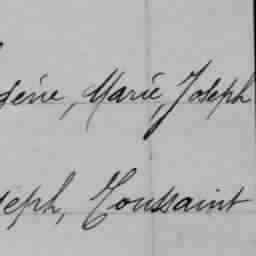 Marie, Joseph
seph, Toussaint